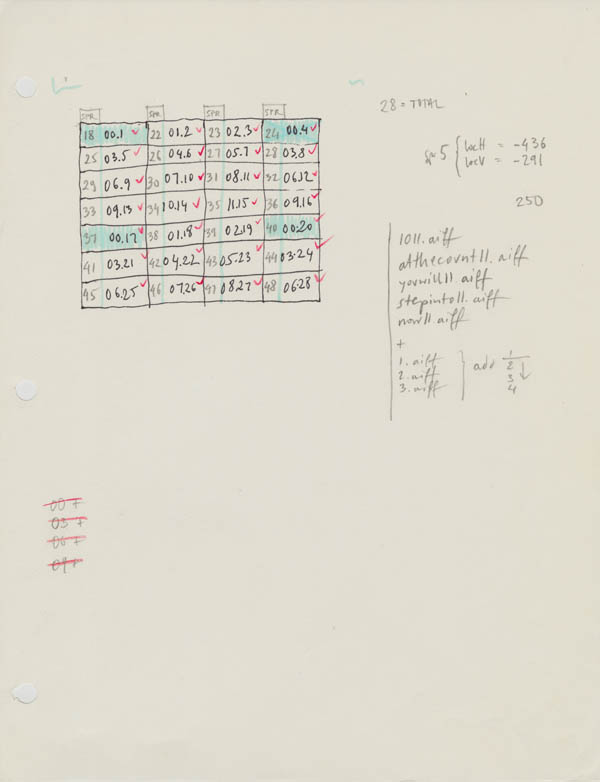 SPR SPR SPR SPR
18 00.1 ✓ 22 01.2 ✓ 23 02.3 ✓ 24 00.4 ✓
25 03.5 ✓ 26 04.6 ✓ 27 05.7 ✓ 28 03.8 ✓
29 06.9 ✓ 30 07.10 ✓ 31 08.11 ✓ 32 06.12 ✓
33 09.13 ✓ 34 10.14 ✓ 35 11.15 ✓ 36 09.16 ✓
37 00.17 ✓ 38 01.18 ✓ 39 02.19 ✓ 40 00.20 ✓
41 03.21 ✓ 42 04.22 ✓ 43 05.23 ✓ 44 03.24 ✓
45 06.25 ✓ 46 07.26 ✓ 47 08.27 ✓ 48 06.28 ✓
28 = TOTAL
5 { locH = -436
locV = -291
250
1011.aiff
atthecount11.aiff
youwill11.aiff
stepinto11.aiff
now11.aiff
+
1.aiff
2.aiff
3.aiff
} add 1
2
3 ↓
4
00 +
03 +
06 +
09 +